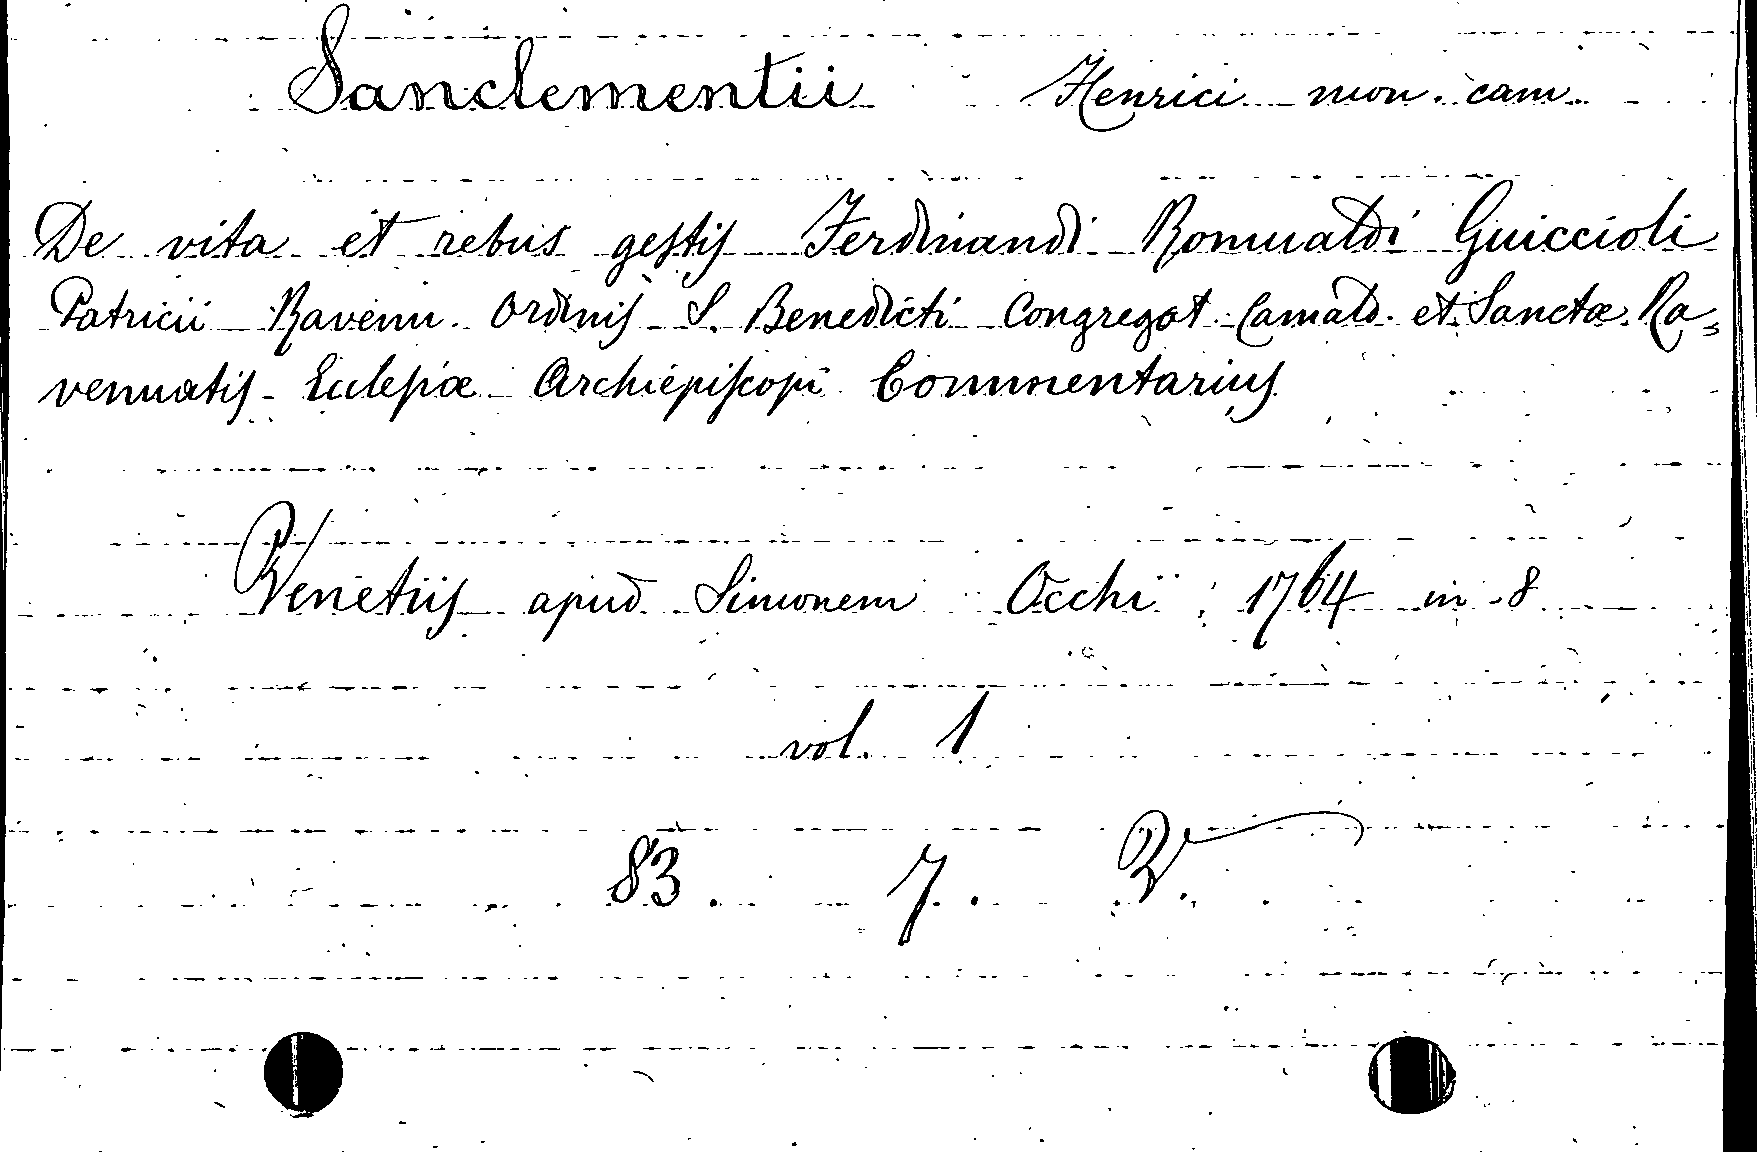 Sanclementii Henrici mon. cam.
De vita et rebus gestis Ferdinandi Romualdi Guiccioli
Patricii Ravenn. Ordinis S. Benedicti Congregat. Camald. et Sanctæ Ra=
vennatis Eclesiæ Archiepiscopi Commentarius
Venetiis apud Simonem Occhi 1764 in 8
vol. 1
83. 7. V.